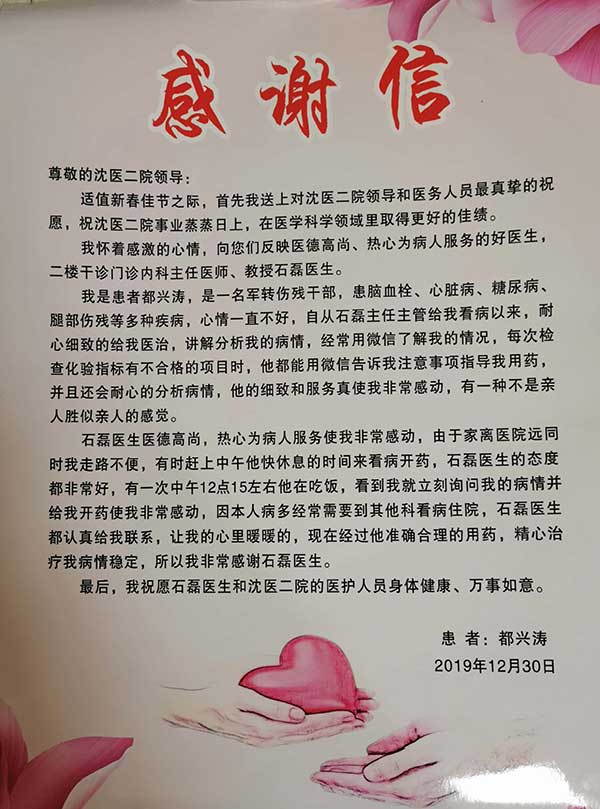 感谢信
尊敬的沈医二院领导：
适值新春佳节之际，首先我送上对沈医二院领导和医务人员最真挚的祝
愿，祝沈医二院事业蒸蒸日上，在医学科学领域里取得更好的佳绩。
我怀着感激的心情，向您们反映医德高尚、热心为病人服务的好医生，
二楼干诊门诊内科主任医师、教授石磊医生。
我是患者都兴涛，是一名军转伤残干部，患脑血栓、心脏病、糖尿病、
腿部伤残等多种疾病，心情一直不好，自从石磊主任主管给我看病以来，耐
心细致的给我医治，讲解分析我的病情，经常用微信了解我的情况，每次检
查化验指标有不合格的项目时，他都能用微信告诉我注意事项指导我用药，
并且还会耐心的分析病情，他的细致和服务真使我非常感动，有一种不是亲
人胜似亲人的感觉。
石磊医生医德高尚，热心为病人服务使我非常感动，由于家离医院远同
时我走路不便，有时赶上中午他快休息的时间来看病开药，石磊医生的态度
都非常好，有一次中午12点15左右他在吃饭，看到我就立刻询问我的病情并
给我开药使我非常感动，因本人病多经常需要到其他科看病住院，石磊医生
都认真给我联系，让我的心里暖暖的，现在经过他准确合理的用药，精心治
疗我病情稳定，所以我非常感谢石磊医生。
最后，我祝愿石磊医生和沈医二院的医护人员身体健康、万事如意。
患 者：都兴涛
2019年12月30日